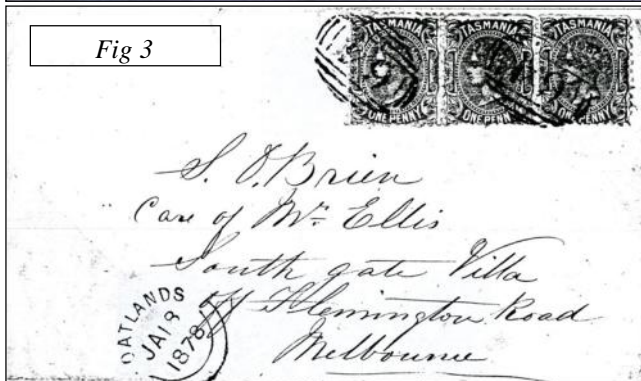 Fig 3
TASMANIA TASMANIA TASMANIA
ONE PENNY ONE PENNY ONE PENNY
S. O'Brien
Care of Mr. Ellis
South gate Villa
off Flemington Road
Melbourne
OATLANDS
JA 18
1878